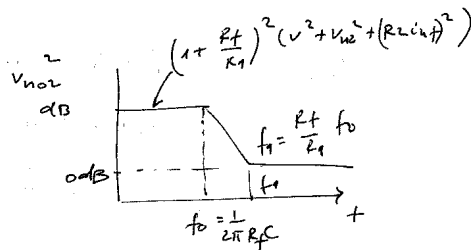 (1 + Rf/R1)² (v² + Vn2² + (R2 inf)²)
Vno2²
dB
f1 = Rf/R1 f0
0dB
f1
f
f0 = 1/2π RfC